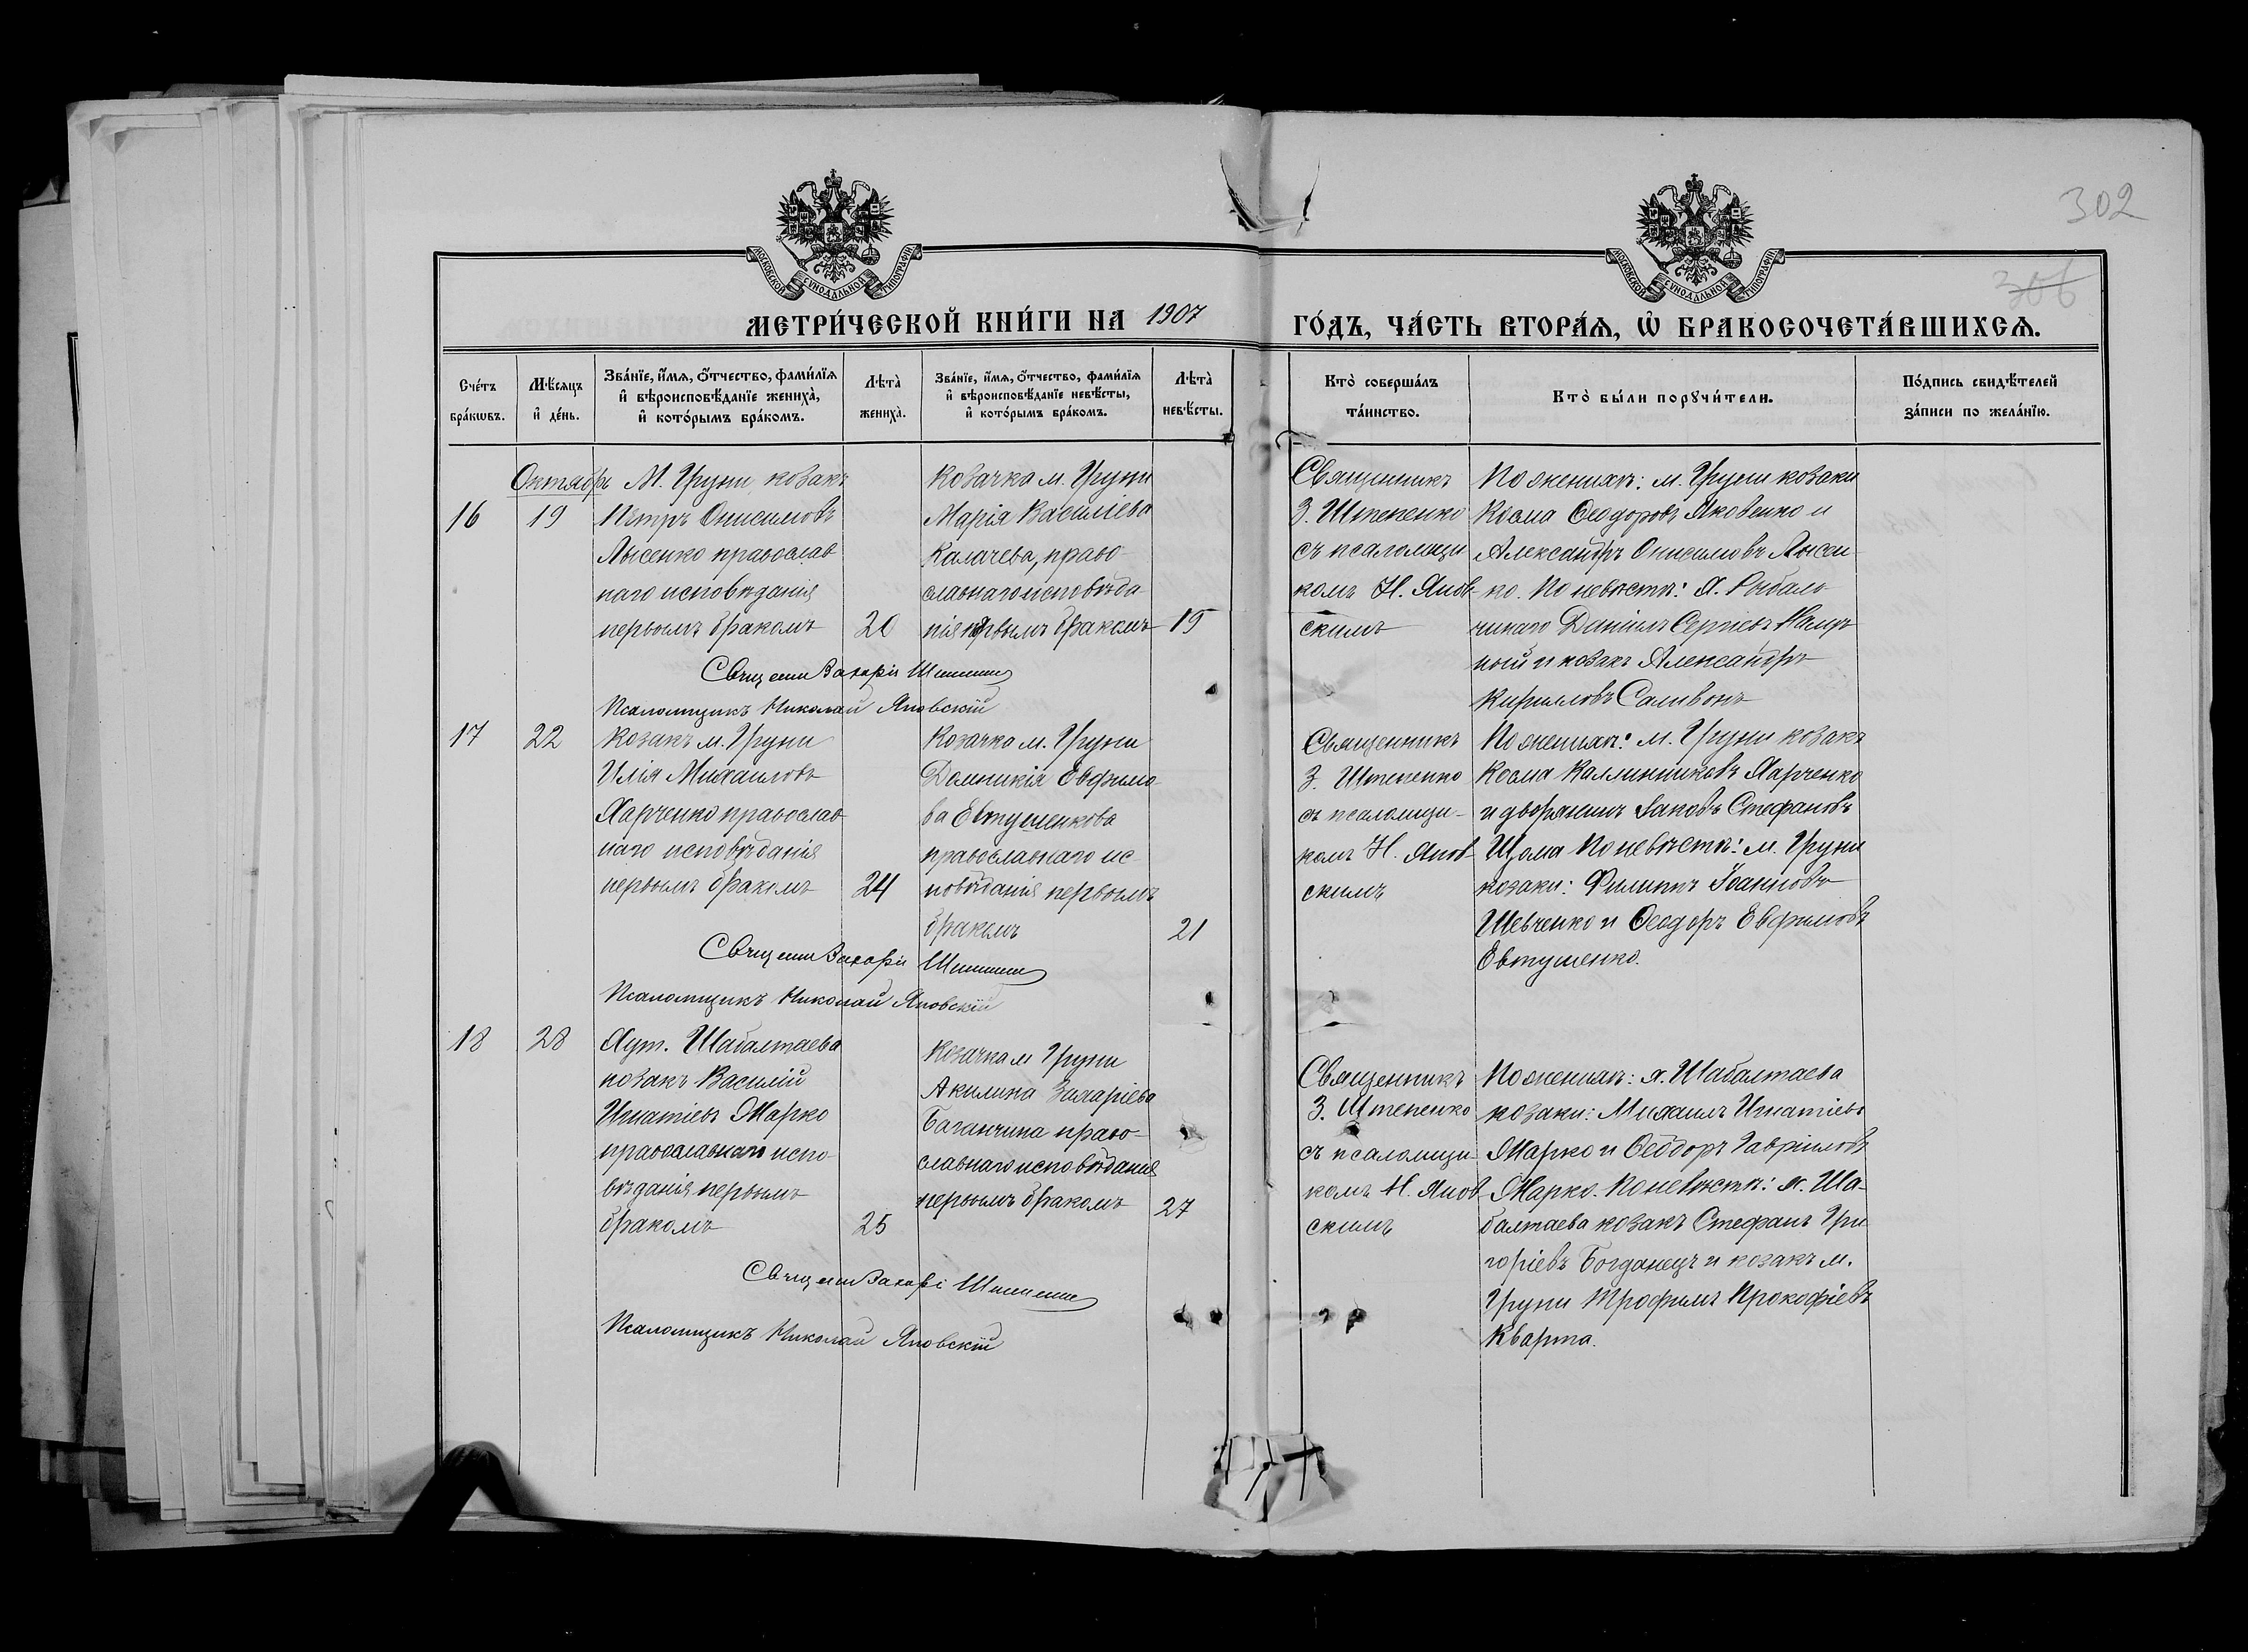 302
306
МОСКОВСКОЙ СѴНОДАЛЬНОЙ ТИПОГРАФІИ
МОСКОВСКОЙ СѴНОДАЛЬНОЙ ТИПОГРАФІИ
МЕТРИ́ЧЕСКОЙ КНИ́ГИ НА 1907
ГО́ДЪ, ЧА́СТЬ ВТОРА́Ѧ, Ѡ҆ БРАКОСОЧЕТА́ВШИХСѦ.
Сче́тъ
бра́кѡвъ.
Мѣ́сѧцъ
и҆ де́нь.
Зва́нїе, и҆́мѧ, ѻ҆́тчество, фами́лїѧ
и҆ вѣроисповѣ́данїе жениха̀,
и҆ кото́рымъ бра́комъ.
Лѣта̀
жениха̀.
Зва́нїе, и҆́мѧ, ѻ҆́тчество, фами́лїѧ
и҆ вѣроисповѣ́данїе невѣ́сты,
и҆ кото́рымъ бра́комъ.
Лѣта̀
невѣ́сты.
Кто̀ соверша́лъ
та́инство.
Кто̀ бы́ли порꙋчи́тели.
По́дпись свидѣ́телей
за́писи по жела́нїю.
Октябрь
16
19
М. Груни козакъ
Петръ Онисимовъ
Лысенко православ
наго исповѣданія
первымъ бракомъ
20
Козачка м. Груни
Марія Василіева
Калачева, право-
славнаго исповѣда
нія первымъ бракомъ
19
Священникъ
З. Штепенко
съ псаломщи
комъ Н. Янов-
скимъ
По женихѣ: м. Груни козаки
Косма Ѳеодоровъ Яковенко и
Александръ Онисимовъ Лысен-
ко. По невѣстѣ: х. Рыбаль
чинаго Даніилъ Сергіевъ
и козакъ Александръ
Кирилловъ Саливонъ
Священ Захарій Штепенко
Псаломщикъ Николай Яновскій
17
22
Козакъ м. Груни
Илія Михаиловъ
Харченко православ
наго исповѣданія
первымъ бракомъ
24
Козачка м. Груни
Домникія Евфимо-
ва Евтушенкова
православнаго ис-
повѣданія первымъ
бракомъ
21
Священникъ
З. Штепенко
съ псаломщи-
комъ Н. Янов-
скимъ
По женихѣ: м. Груни козакъ
Косма Каллиниковъ Харченко
и дворянинъ Іаковъ Стефановъ
Щома По невѣстѣ: м. Груни
козаки: Филиппъ Іоанновъ
Шевченко и Ѳеодоръ Евфимовъ
Евтушенко.
Священ Захарій Штепенко
Псаломщикъ Николай Яновскій
18
28
Хут. Шабалтаева
козакъ Василій
Игнатіевъ Марко
православнаго испо-
вѣданія первымъ
бракомъ
25
Козачка м Груни
Акилина Захаріева
Баганчина право-
славнаго исповѣданія
первымъ бракомъ
27
Священникъ
З. Штепенко
съ псаломщи-
комъ Н. Янов-
скимъ
По женихѣ: х. Шабалтаева
козаки: Михаилъ Игнатіевъ
Марко и Ѳеодоръ Гавріиловъ
Марко. По невѣстѣ: х. Ша-
балтаева козакъ Стефанъ Гри
горіевъ Богданецъ и козакъ м.
Груни Трофимъ Прокофіевъ
Кварта.
Священ Захарі Штепенко
Псаломщикъ Николай Яновскій